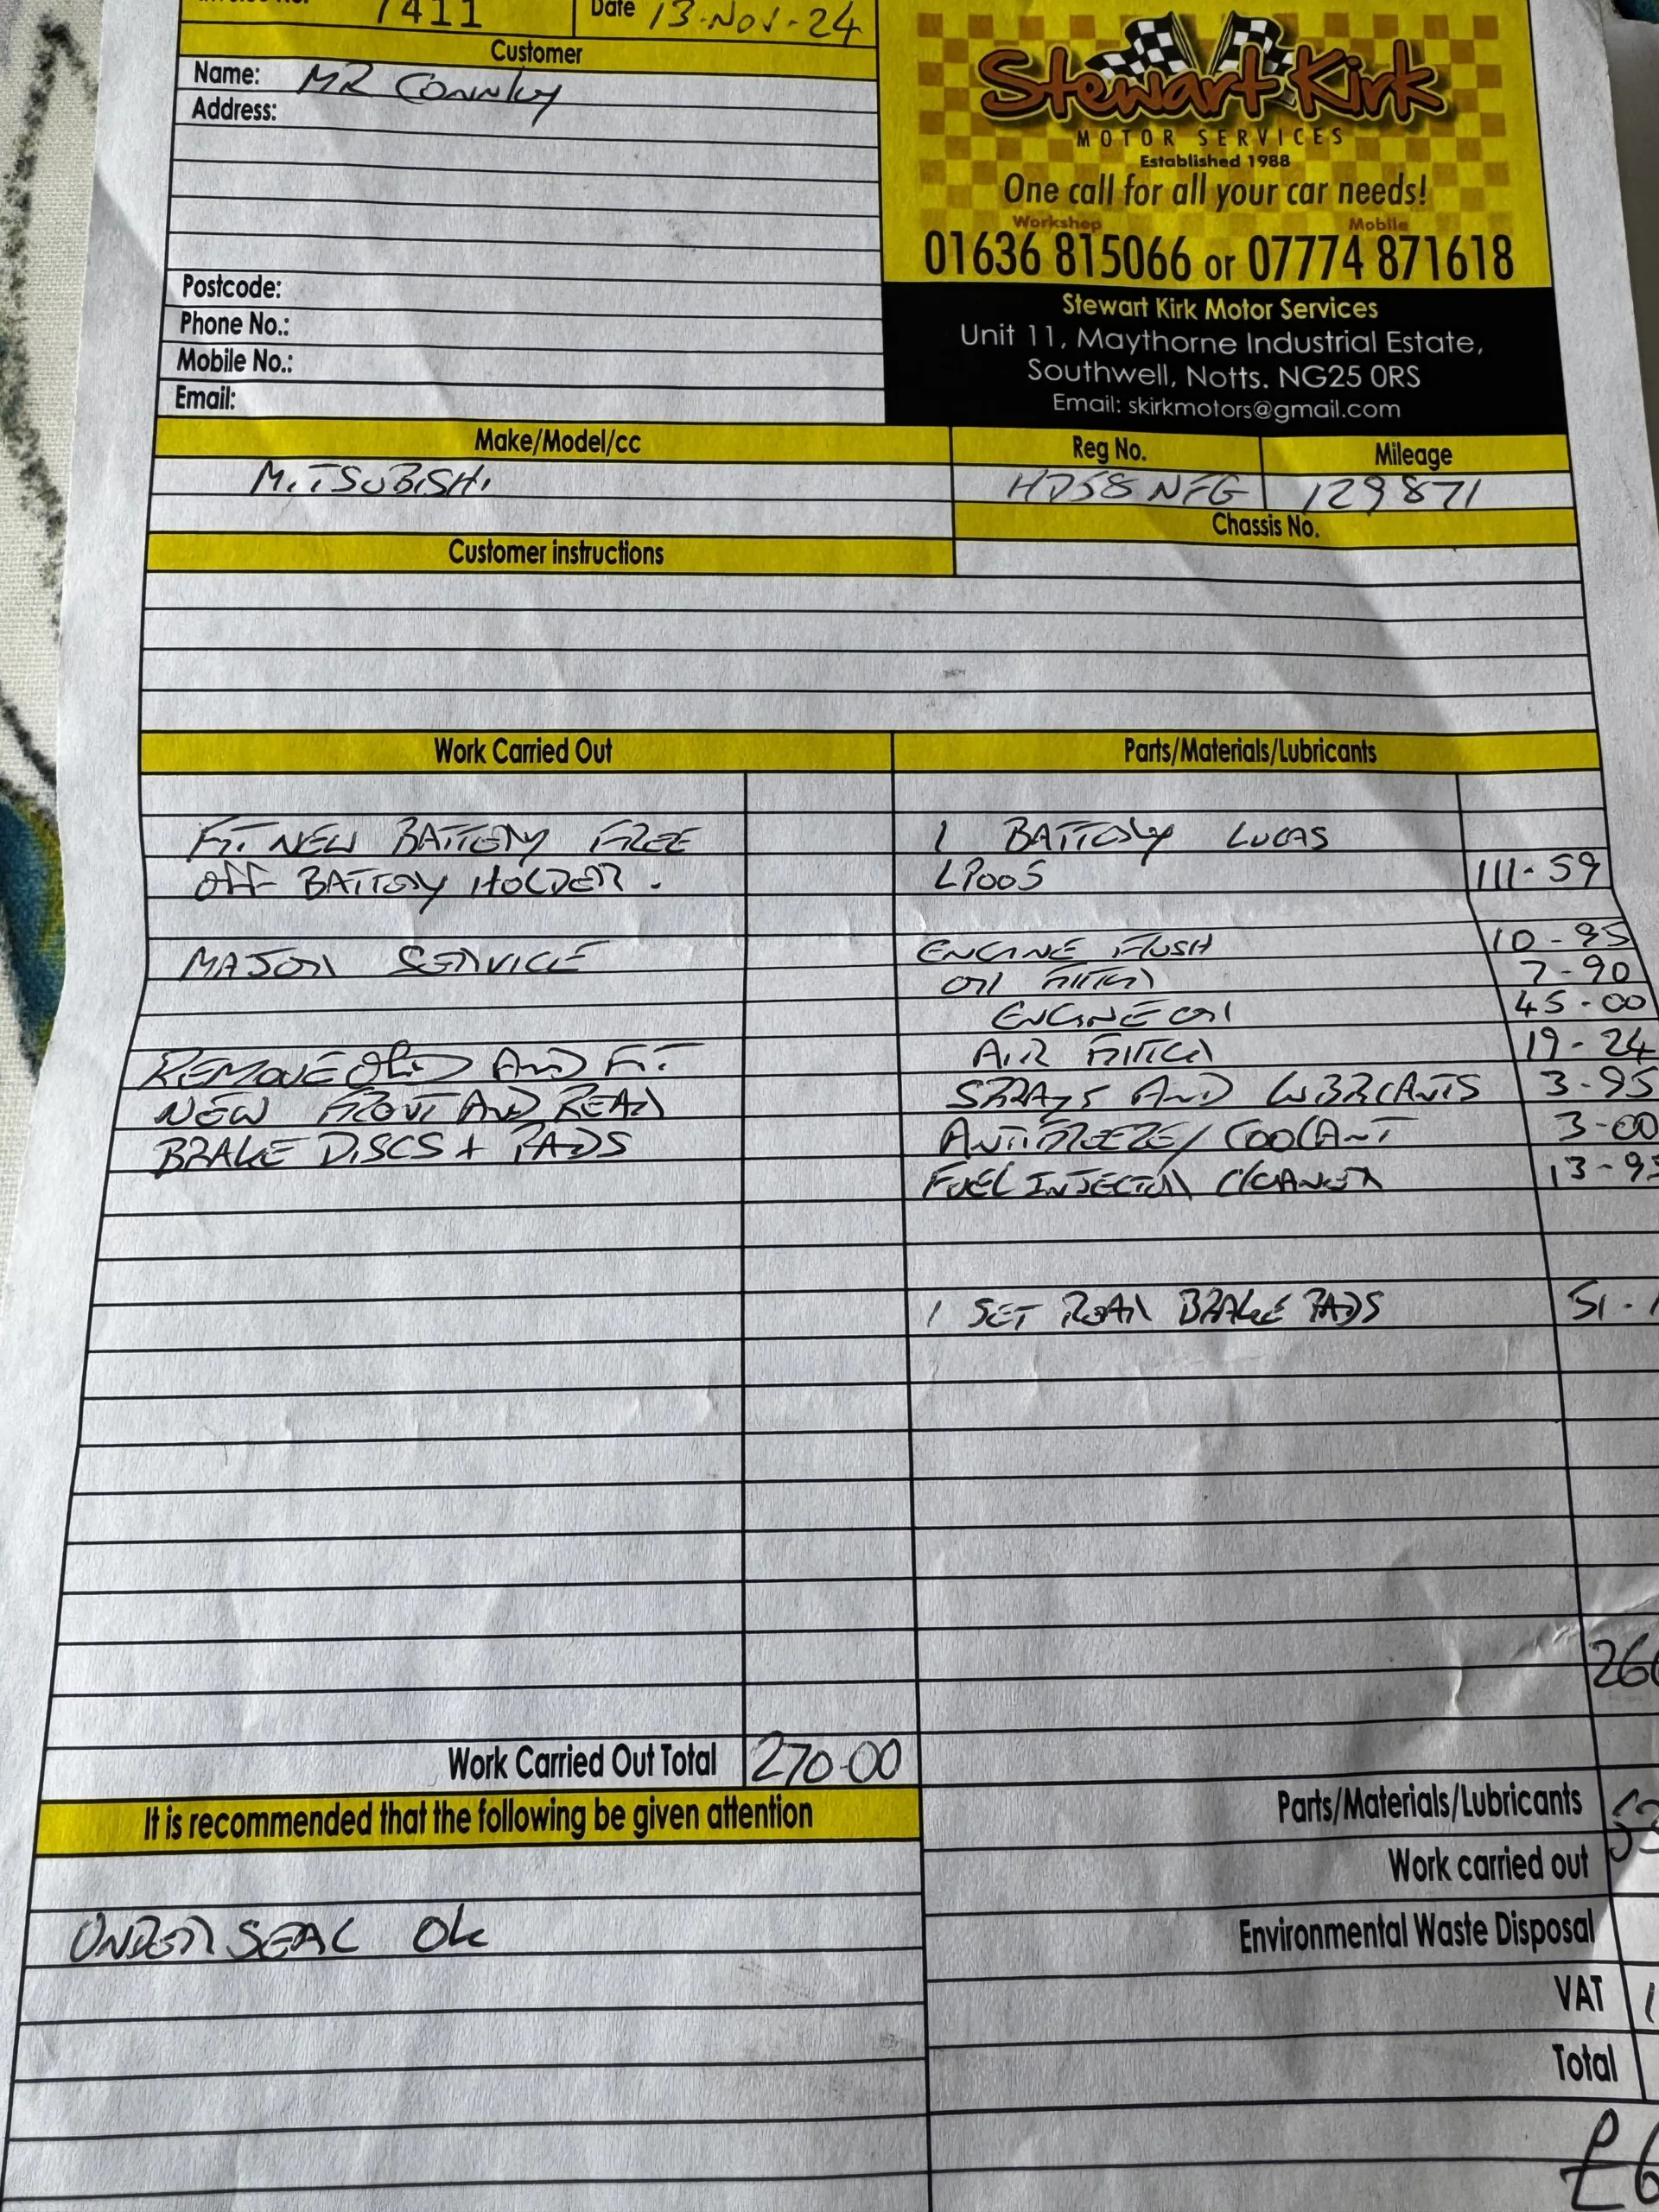 7411 Date 13-Nov-24
Customer
Name: MR Connley
Address:
Stewart Kirk
MOTOR SERVICES
Established 1988
One call for all your car needs!
Workshop Mobile
01636 815066 or 07774 871618
Stewart Kirk Motor Services
Unit 11, Maythorne Industrial Estate,
Southwell, Notts. NG25 0RS
Email: skirkmotors@gmail.com
Postcode:
Phone No.:
Mobile No.:
Email:
Make/Model/cc Reg No. Mileage
MITSUBISHI HD58 NFG 129871
Chassis No.
Customer instructions
Work Carried Out Parts/Materials/Lubricants
FIT NEW BATTERY FREE 1 BATTERY LUCAS
OFF BATTERY HOLDER. LP005 111-59
MAJOR SERVICE ENGINE FLUSH 10-95
OIL FILTER 7-90
ENGINE OIL 45-00
REMOVE OLD AND FIT AIR FILTER 19-24
NEW FRONT AND REAR SPRAYS AND LUBRICANTS 3-95
BRAKE DISCS + PADS ANTIFREEZE/COOLANT 3-00
FUEL INJECTOR CLEANER 13-95
1 SET REAR BRAKE PADS 51-
Work Carried Out Total 270-00
It is recommended that the following be given attention
Parts/Materials/Lubricants
Work carried out
UNDER SEAL OK
Environmental Waste Disposal
VAT
Total
£6